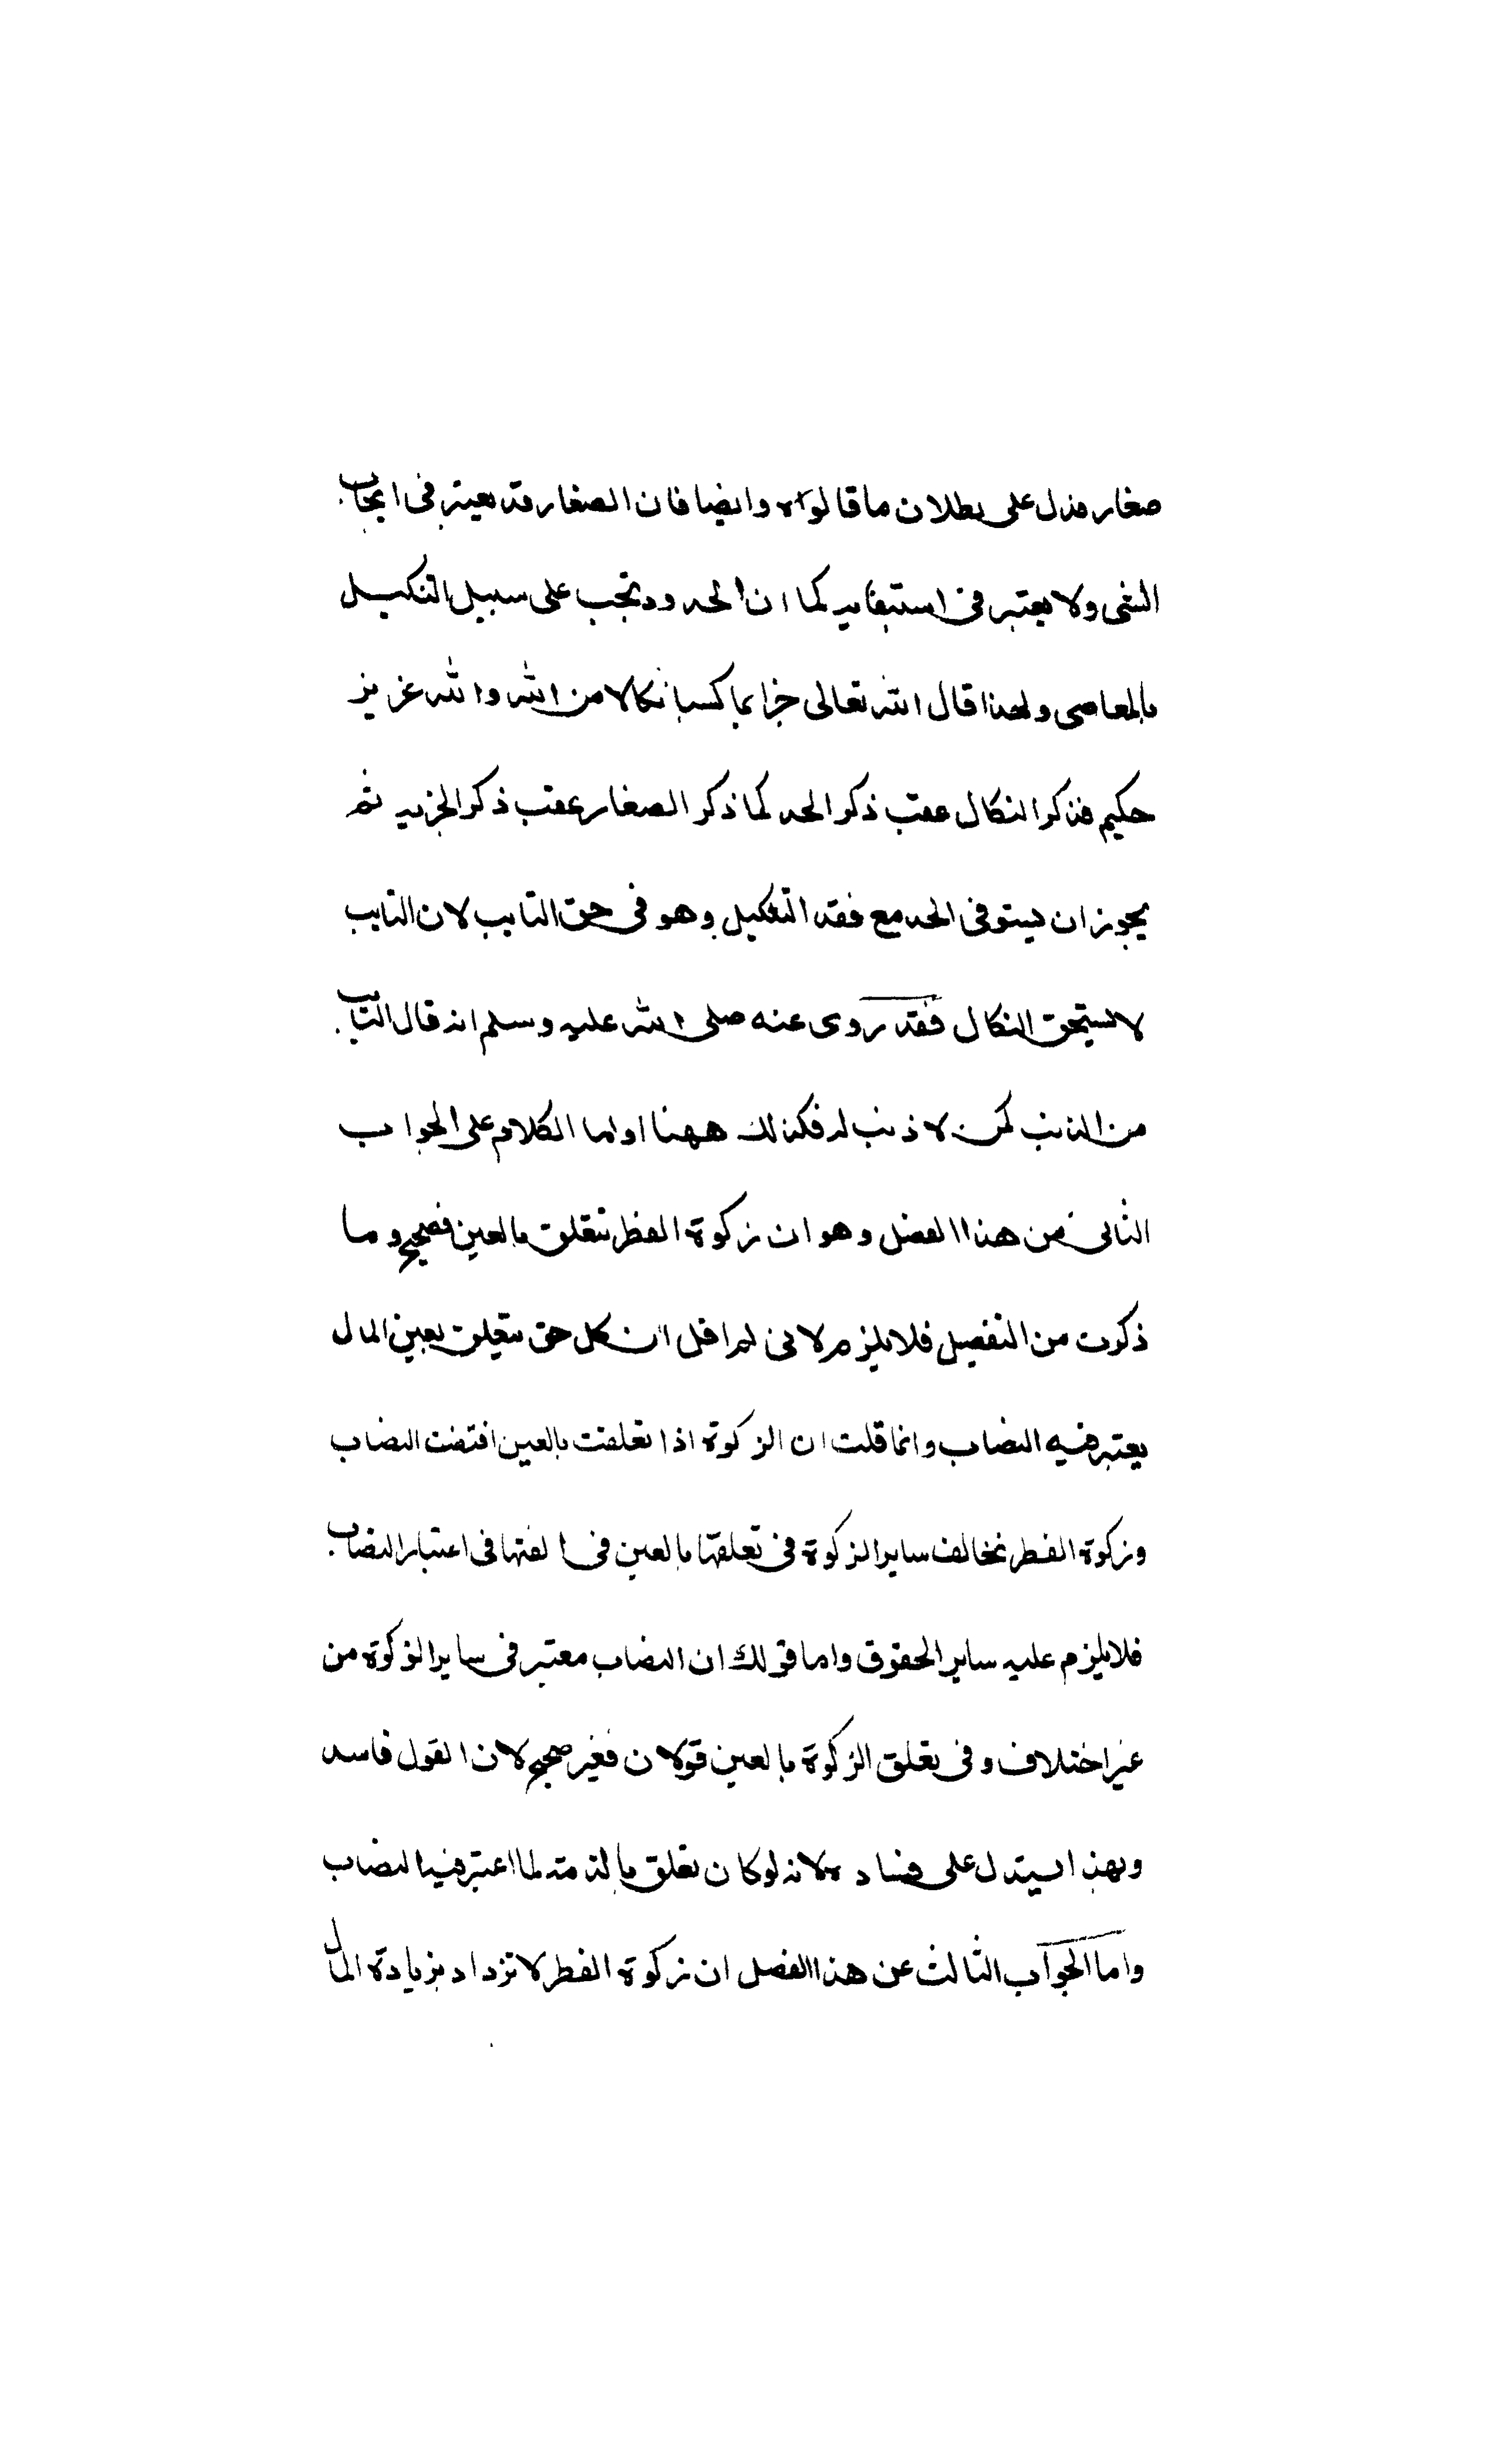 صغار فدل على بطلان ما قالوه وايضا فان الصغار قد يعتبر فى ايجاب
الشى ولا يعتبر فى استيفايه كما ان الحدود تجب على سبيل التنكيل
بالمعاصى ولهذا قال الله تعالى جزا بما كسبا نكالا من الله والله عزيز
حكيم فذكر النكال عقب ذكر الحد كما ذكر الصغار عقب ذكر الجزيه ثم
يجوز ان يستوفى الحد مع فقد التنكيل وهو فى حق التايب لان التايب
لا يستحق النكال فقد روى عنه صلى الله عليه وسلم انه قال التايب
من الذنب كمن لا ذنب له فكذلك ههنا واما الكلام على الجواب
الثانى من هذا الفصل وهو ان زكوة الفطر تتعلق بالعين فصحيح وما
ذكرت من التفصيل فلا يلزم لانى لم اقل ان كل حق يتعلق بعين المال
يعتبر فيه النصاب وانما قلت ان الزكوة اذا تعلقت بالعين اقتضت النصاب
وزكوة الفطر تخالف ساير الزكوة فى تعلقها بالعين فى الفتها فى اعتبار النصاب
فلا يلزم عليه ساير الحقوق واما قولك ان النصاب معتبر فى ساير الزكوة من
غير اختلاف وفى تعلق الزكوة بالعين قولان فغير صحيح لان القول فاسد
وبهذا يستدل على فساده لانه لو كان تعلق بالذمته لما اعتبر فيه النصاب
واما الجواب الثالث عن هذا الفصل ان زكوة الفطر لا تزداد بزيادة المال